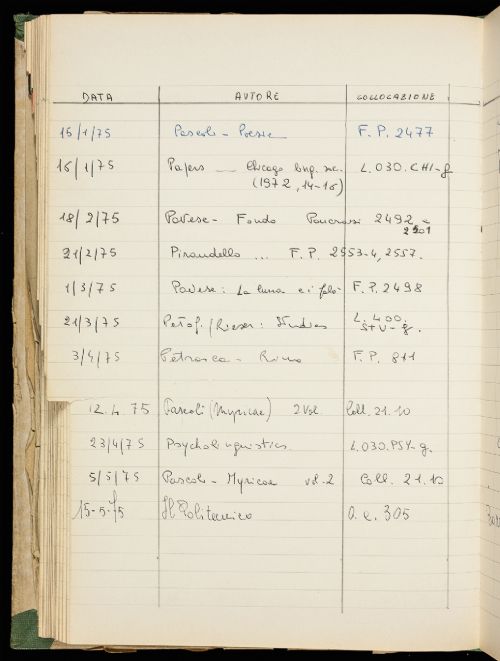 DATA AUTORE COLLOCAZIONE
15/1/75 Pascoli - Poesie F. P. 2477
16/1/75 Papers Chicago ling. soc. L.030.CHI-g
(1972, 14-16)
18/2/75 Pavese - Fondo Pancrazi 2492 e
2501
21/2/75 Pirandello ... F. P. 2553-4, 2557.
1/3/75 Pavese: La luna e i falò F. P. 2498
21/3/75 Petöf./Rieser: Studies L. 400.
STU-g.
3/4/75 Petrarca - Rime F. P. 811
12.4.75 Pascoli (Myricae) 2 Vol. Coll. 21.10
23/4/75 Psycholinguistics L.030.PSY-g.
5/5/75 Pascoli - Myricae vol. 2 Coll. 21.10
15-5-75 Il Politecnico O. e. 305